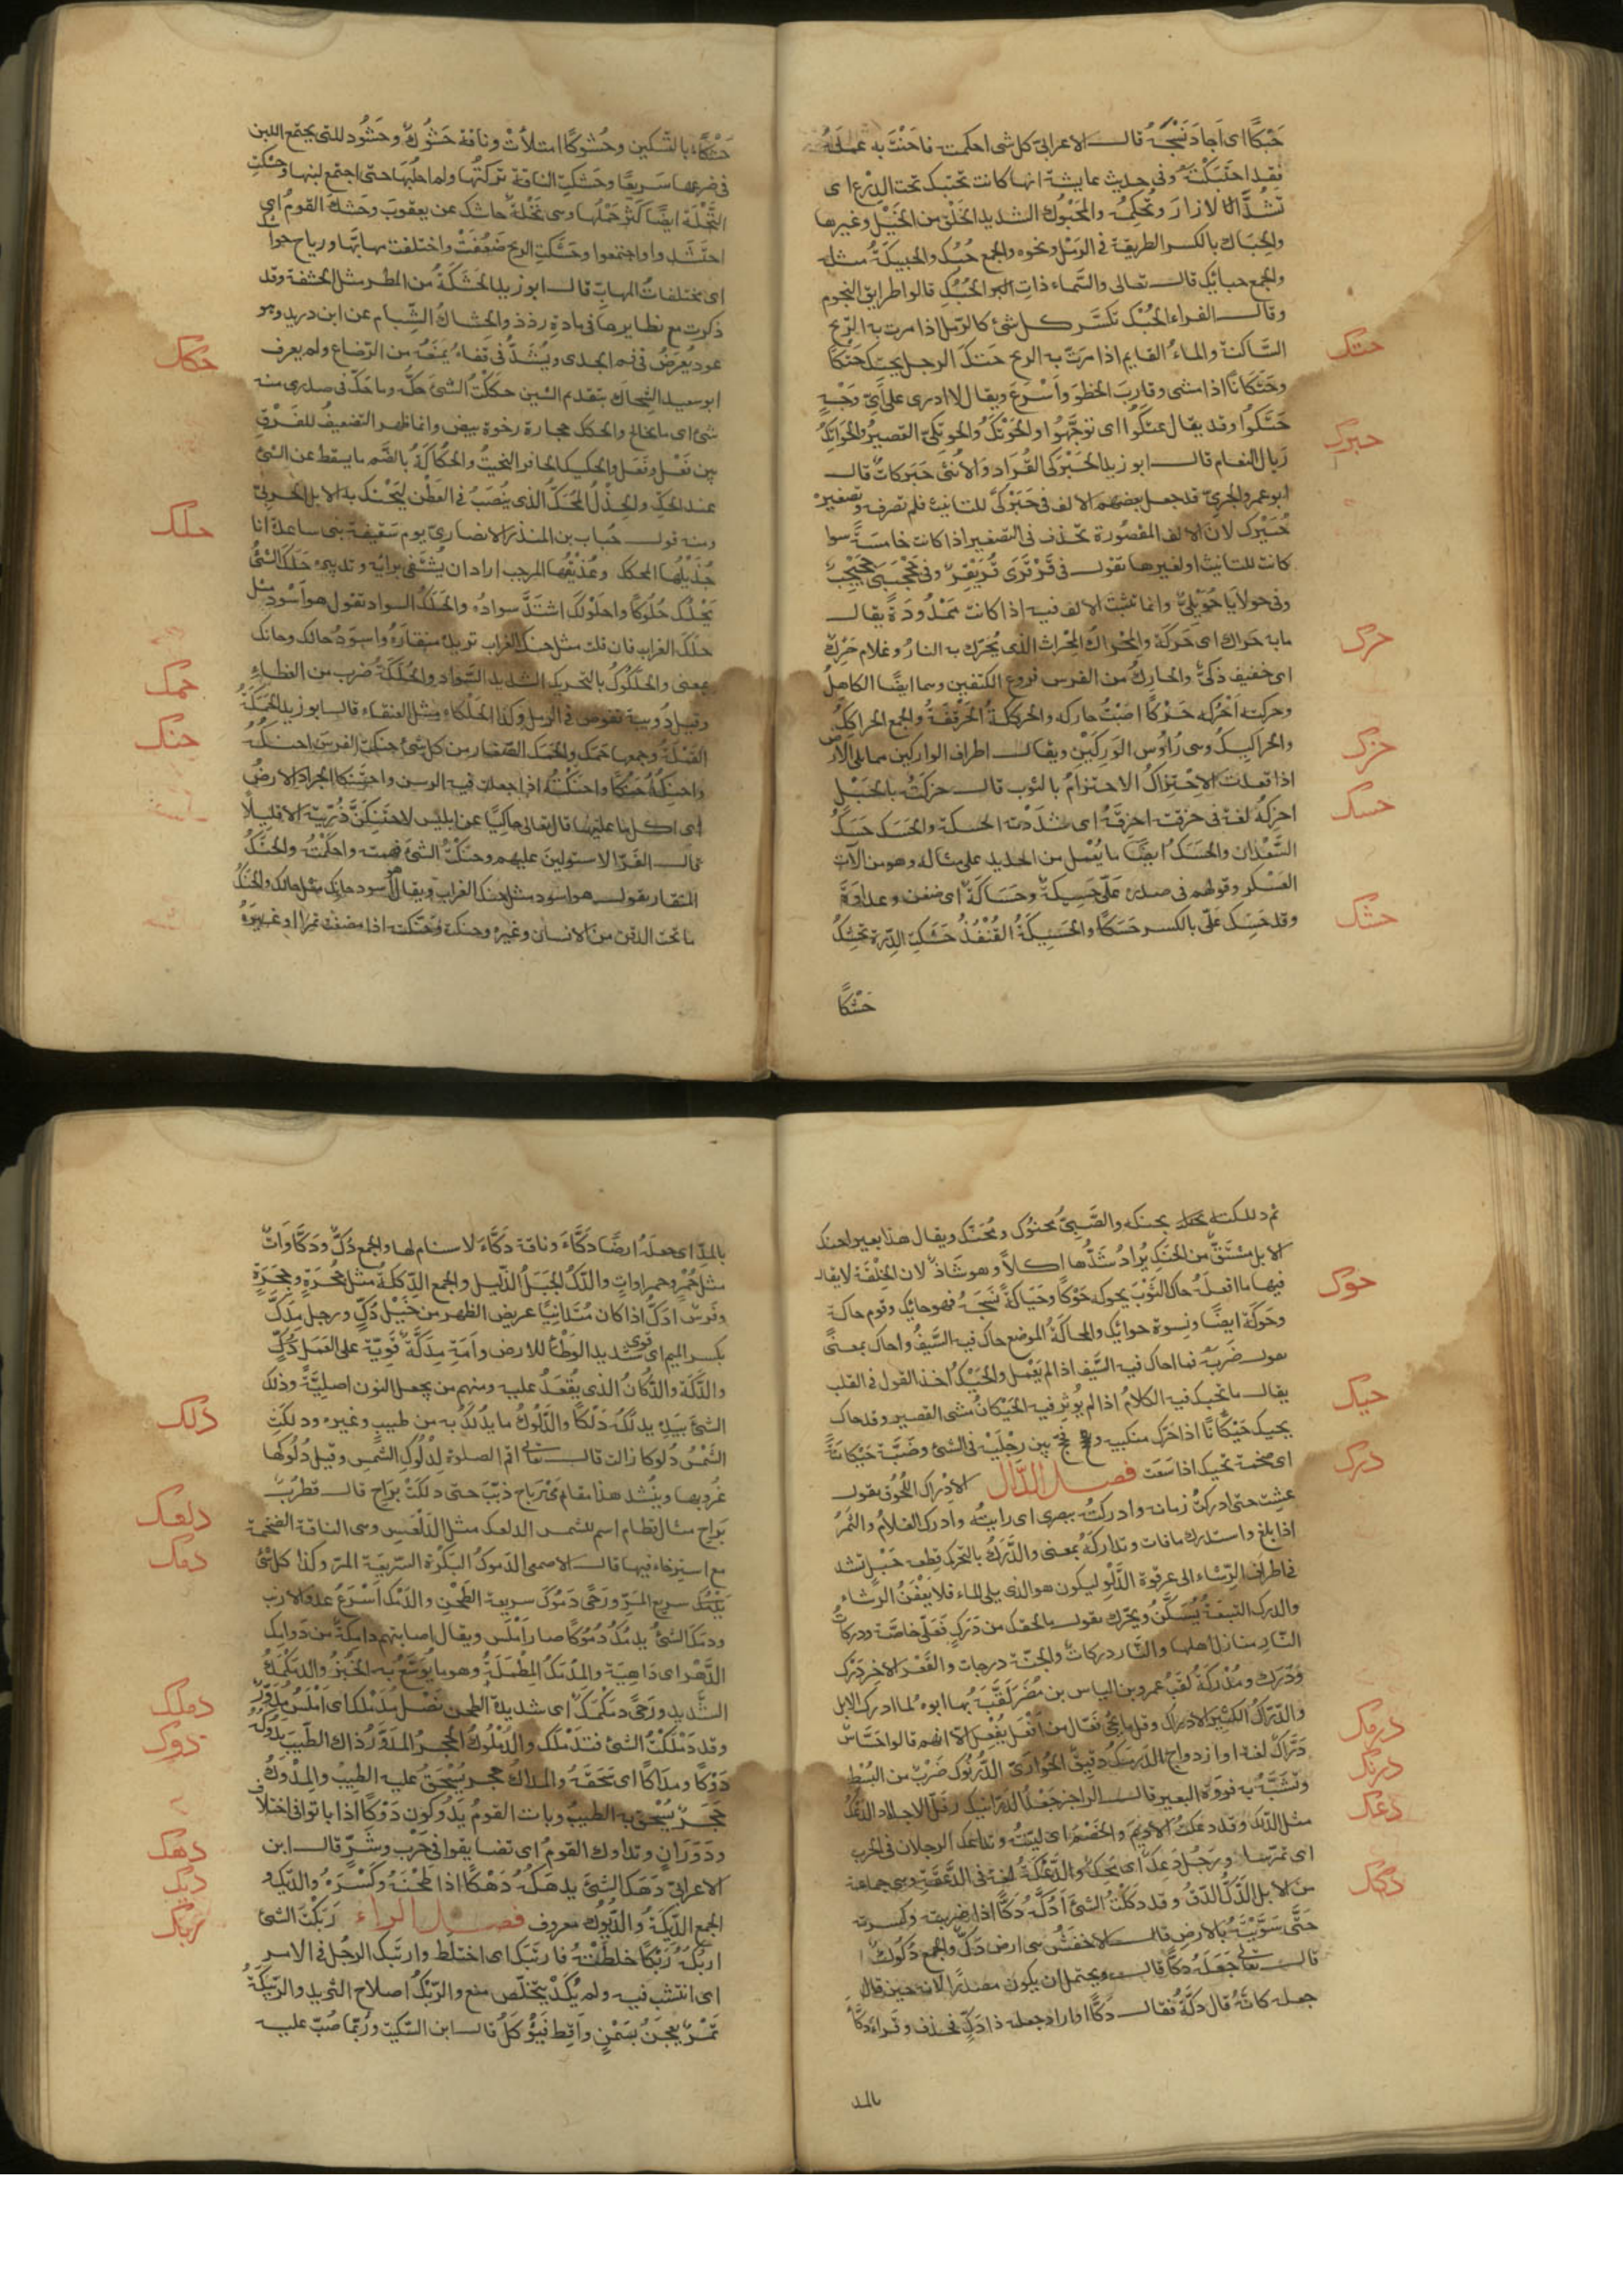 حَبْكًا اى اَجادَ نَسْجَهُ قال ابن الاعرابى كل شى احكمته فاحسنت به عمله
فقد احْتَبَكْتَهُ وفى حديث عايشة انها كانت تحتبك تحت الدِّرْع اى
تَشُدُّ الازار وتُحكِمُهُ والمَحْبُوك الشديد الخَلْق من الخَيْل وغيرها
والحِبَاك بالكسر الطريقة فى الرمل ونحوه والجمع حُبُك والحبيكَةُ مثله
والجمع حبائِك قال تعالى والسَّماء ذاتِ الحُبُكِ قالوا طرايق النجوم
وقال الفراء الحُبُك تكسّر كل شئ كالرمل اذا مرت به الرّيح
السَّاكنة والماءُ القايم اذا مرّت به الريح حَتَكَ الرجل يحتِك حَتْكًا
حتك
وحَتَكَانًا اذا مشى وقاربَ الخطْوَ وأسْرَعَ ويقال لا ادرى على اَىّ وَجْهٍ
حَتَكُوا وقد يقال عتَكُوا اى توجَّهُوا والحَوْتَكُ والحَوتكىّ القصيرُ والحواتِكُ
حبرك
رِيال النعام قال ابو زيد الحَبَرْكَى القُرَاد والأنثى حَبَركاةٌ قال
ابو عمرو الجرمىّ قد جعل بعضهم الالف فى حَبَرْكَى للتانيث فلم تصرف وتصغيره
حُبَيْرِك لان الالف المقصورة تحذف فى التصغير اذا كانت خامسَةً سوا
كانت للتانيث او لغيرها تقول فى قَرْقَرَى قُرَيْقِرٌ وفى جَحْجَبَى جُحَيْجِبٌ
وفى حولايا حُوَيْلِىّ وانما تثبت الالف فيه اذا كانت ممْدُودَةً يقال
ما به حَراك اى حَرَكَة والمِحْراكُ المِحْراث الذى يُحَرّك به النارُ وغلام حَرِك
حرك
اى خفيف ذكىّ والحارِكُ من الفرس فروع الكتفين وهما ايضًا الكاهلُ
وحركته أحْرُكه حَرْكًا اصَبْتُ حاركه والحَركَكَةُ الحَرْقَفَةُ والجمع الحراكِكُ
والحراكِيكُ وهى رُاؤس الوَرِكَيْنِ ويقال اطراف الوركين مما يلى الارض
حزك
اذا قعدت الاِحْتِزاكُ الاحتزامُ بالثوب قال حزكتُ بالحَبْل
احزِكُهُ لغة فى حزقته احزقُهُ اى شدَدْته الحسكة والحَسَك حَسَكُ
حسك
السَّعْدان والحَسَكُ ايضًا ما يُعْمل من الحديد على مثاله وهو من آلات
العَسْكر وقولهم فى صدره عَلَىَّ حَسِيكَةٌ وحَسَاكَة اى ضغن وعداوة
وقد حَسِك عَلَىَّ بالكسر حَسَكًا والحُسَيْكَةُ القُنْفُذُ حَشَكَتِ الدِّرَّة تحشِكُ
حشك
حَشْكًا
حَشْكًا بالتسكين وحُشوكًا امتلأتْ وناقة حَشُوك وحَشُود للتى يجتمع اللبن
فى ضرعها سريعًا وحَشَكتُ الناقة تركتُها ولم احلبْهَا حتى اجتمع لبنها وحَشَكتِ
النَّخْلَة ايضًا كثُر حَمْلُها وهى نَخْلة حاشك عن يعقوبَ وحَشَكَ القومُ اى
احتَشَدوا واجتمعوا وحَشَكَتِ الريح ضَعُفَتْ واختلفت مهابُّها ورياح حواشك
اى مختلفاتُ المهابّ قال ابو زيد الحَشَكَةُ من المطر مثل الحشفة وقد
ذكرت مع نظايرها فى مادة رذذ والحِشاكُ الشِّبَام عن ابن دريد وهو
عود يُعرَضُ فى فم الجدى ويُشَدُّ فى قفاه يمنعُه من الرَّضاع ولم يعرف
حكك
ابو سعيد الشِّحَاك بتقديم الشين حككْتُ الشئ حكَّهُ وما حَكَّ فى صدرى منه
شئ اى ما تخالج والحكك حجارة رخوة بيض وانما ظهر التضعيفُ للفَرْقِ
بين فَعْل وفَعَل والحكيك الحافر النحيتُ والحُكَاكَةُ بالضّم ما يسقط عن الشئ
عند الحكّ والجِذْلُ المُحَكَّكُ الذى يُنْصَبُ فى العَطَن لتحْتَكَّ به الابل الجربىٰ
ومنه قول حُباب بن المنذر الانصارىّ يوم سَقيفة بنى ساعدة انا
حلك
جُذَيْلُها المحكك وعُذَيْقُها المرجب اراد ان يُشْتَفَى برايه وتدبيره حَلَكَ الشئُ
يَحْلُك حُلُوكًا واحلَوْلك اشتَدَّ سوادُهُ والحَلَكُ السواد تقول هو أَسْودُ مثل
حَلَك الغراب فان قلت مثل حنك الغراب تريد منقارهُ واسودُ حالك وحانك
بمعنى والحَلَكُوكُ بالتحريك الشديد السَّواد والحُلَكَةُ ضرب من العظاءِ
حمك
وقيل دُويبة تغوص فى الرمل وكذا الحُلْكاء مثل العنقاء قال ابو زيد الحَمَكَةُ
القَمْلَةُ وجمعها حَمَك والحَمَك الصّغار من كل شئ حَنَكتُ الفرس احنُكُه
حنك
واحنِكُهُ حَنْكًا واحتنكْتُهُ اذا جعلت فيه الرسن واحتَنَكَ الجراد الارضَ
اى اكل ما عليها قال تعالى حاكيًا عن ابليس لاحْتَنِكَنَّ ذُرّيته الا قليلًا
قال الفَرّا لاستولين عليهم وحَنَكْتُ الشئ فهمته واحكَمْتُه والحَنَكُ
المنقار يقول هو اسود مثل حنك الغراب ويقال اسود حانِك مثل حالك والحنَكُ
ما تحت الذقن من الانسان وغيره وحنَكَه وحَنَّكَته اذا مضغت تمرًا او غيرَهُ
ثم دلكته بحنكه والصَّبِىّ محنُوك ومُحَنَّك ويقال هذا بعير احنك
الابل مشتقّ من الحَنَكِ يُرادُ شدُّها اكلًا وهو شاذّ لان الخِلْقَة لا يقال
فيها ما افعلَهُ حاك الثَّوْبَ يحوكه حَوْكًا وحِيَاكَةً نَسَجَهُ فهو حائِك وقوم حاكة
حوك
وحَوَكَة ايضًا ونسوة حوائِك والمحاكَةُ الموضع حاك فيه السَّيْفُ واحاك بمعنىً
يقول ضَرَبَهُ فما احاك فيه السَّيف اذا لم يَعْمل والحَيْك اخذ القول فى القلب
يقال ما تحيك فيه الكلامُ اذا لم يُوثِر فيه الحَيَكانُ مشى القصير وقد حاك
حيك
يحيك حَيَكانًا اذا حَرَّك منكبيه وفحّج بين رِجْلَيْه فى المشى وضَبَّة حَيْكانَةٌ
اى ضخمة تحيك اذا سَعَت فصل الدّال الادْراك اللُّحُوق يقول
درك
عشت حتى ادركتُ زمانه وادركتُ ببصرى اى رايتُه وادرك الغلامُ والثمرُ
اذا بلغ واستدرك ما فات وتداركهُ بمعنى والدَّرَكُ بالتحرك قِطعة حَبْل تشد
فى اطراف الرِّشاء الى عرقوة الدَّلْو ليكون هو الذى يلى الماء فلا يَعْفَنُ الرشاء
والدرك التبعَةُ يُسَكَّنُ ويحَرّك يقول ما لحقك من دَرَكٍ فَعَلَىَّ خلاصَهُ ودركاتُ
النّارِ منازل اهلها والنَّار دركات والجنّة درجات والقَعْر الاخر دَرْك
ودَرَك ومُدْركَةُ لَقَبُ عمرو بن الياس بن مُضَرَ لَقَّبَهُ بها ابوه لما ادرك الابل
والدَّرّاكُ الكثير الادراك وقلّما يجئ فَعّال من أَفْعَلَ يُفْعِل الّا انهم قالوا حَسَّاس
درمك
دَرّاك لغة او ازدواج الدّرمَكُ دقيق الحُوَّارَى الدُّرْنُوك ضَرْبٌ من البُسُط
درنك
وتُشَبَّهُ به فروَةُ البعير قال الراجز جَعْدُ الدَّرانيك رِفَلّ الاجلاد الدَّعْكُ
دعك
مثل الدَّلك وقد دعكتُ الاديمَ والخَصْمَ اى ليّنتُ وتداعك الرجلان فى الحرب
اى تمرّسا ورَجُل دَعِك اى مَحِك والدَّعْكَةُ لغة فى الدَّعقَةِ وهى جماعة
من الابل الدَّكُّ الدَّقُّ وقد دَكَكْتُ الشئَ اَدُكُّهُ دَكًّا اذا ضربته وكسرته
دكك
حَتَّى سَوَّيْتَهُ بالارض قال الاخفَشُ هى ارض دَكٌّ والجمع دُكُوك
قال تعالى جَعَلَهُ دَكًّا قال ويحتمل ان يكون مصدرًا لانه حين قال
جعله كانّهُ قال دَكَّهُ فقال دَكًّا او اراد جعله ذا دَكٍّ فحذف وقراء دَكَّاءَ
بالمد
بالمدّ اى جعلهُ ارضًا دكّاءَ وناقة دَكَّاءُ لا سنام لها والجمع دُكٌّ ودَكّاوَات
مثل حُمْرٍ وحمراواتٍ والدُّكُّ الجَبَلُ الذَّليل والجمع الدِّككَة مثل جُحْرٍ وجِحَرَةٍ
وفرس ادَكُّ اذا كان مُتَدانيًا عريض الظهر من خَيْل دُكٍّ ورجل مِدَكّ
بكسر الميم اى قوى شديد الوَطْءِ للارض وأمَة مِدَكَّةٌ قَوِيّة على العَمَل
والدَّكَّة والدُّكَّانُ الذى يُقْعَدُ عليه ومنهم من يجعل النون اصليَّةً ودلك
دلك
الشئَ بيَدِهِ يدلُكهُ دَلْكًا والدَّلُوكُ ما يُدْلَكُ به من طيبٍ وغيره ودلكتِ
الشَّمْسُ دُلوكا زالت قال تعالى اقم الصلوة لِدُلُوكِ الشمسِ وقيل دُلُوكها
غُروبها ويُنْشد هذا مقام قدمَى رباح ذَبَّبَ حتى دلكَتْ بَراحِ قال قطرُب
دلعك
بَراحِ مثال قَطام اسم للشمس الدلعك مثل الدَّلْعَسِ وهى الناقة الضخمة
دمك
مع استرخاء فيها قال الاصمعى الدَموكُ البَكْرَةُ السّريعة المرّ وكذا كل شئ
يَدْمُك سريع المَرّ ورَحًى دَمُوكٌ سريعة الطَحْنِ والدَّمْك أَسْرَعُ عدو الارنب
ودمَكَ الشئُ يدمُكُ دُمُوكًا صار أَمْلَس ويقال اصابتهم دامكَة من دَوامك
الدَّهْر اى دَاهِيَة والمِدْمَكُ المِطْمَلَةُ وهو ما يُوَسَّعُ به الخُبْزُ والدَّمَكْمَكُ
الشّديد ورَحًى دَمَكْمَك اى شديدة الطحن نَصْل مُدَمْلَك اى أَمْلَسُ مُدَوَّر
دملك
وقد دَمْلَكْتُ الشئ فتدَمْلَك والدُّمْلُوكُ الحجرُ المدَوَّرُ داك الطِّيبَ يدوكُهُ
دوك
دَوْكًا ومَدَاكًا اى سَحَقَهُ والمداك حجر يُسْحَقُ عليه الطيبُ والمِدْوَكُ
حَجَر يُسْحَق به الطيبُ وبات القومُ يَدُوكون دَوْكًا اذا باتوا فى اختلاف
ودَوَرَانٍ وتداوك القومُ اى تضايقوا فى حَرْب وشَرٍّ قال ابن
دهك
الاعرابىّ دَهَك الشئَ يدهَكُه دَهْكًا اذا طَحَنَهُ وكَسَرَهُ والدّيك
ديك
الجمع الدِّيَكَةُ والدُّيُوك معروف فصل الراء رَبَكتُ الشئَ
ربك
اربُكُهُ رَبْكًا خلطتُهُ فارتبَك اى اختلط وارتبَك الرجُل فى الامر
اى انتشب فيه ولم يَكَدْ يتخلّص منه والرَّبْكُ اصلاح الثريد والرَّبيكَةُ
تَمْرٌ يُعجَنُ بسَمْنٍ وأَقِط فيُؤْكَلُ قال ابن السّكيت ورُبَّما صُبَّ عليه